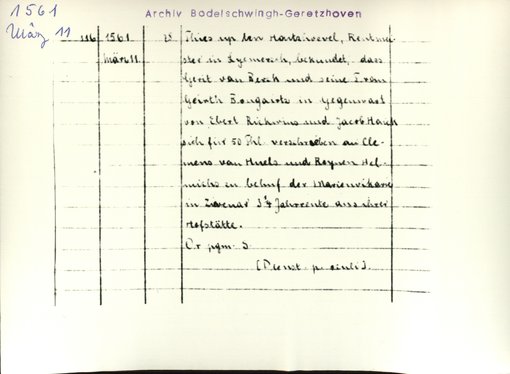 1561
März 11
Archiv Bodelschwingh-Geretzhoven
116 1561 25. Thies up ten Hartahvevel, Rentmei-
März 11. ster in Lyemersch, bekundet, dass
Gerit van Berck und seine Frau
Geirth Bongartz in Gegenwart
von Ebert Rickwins und Jacob Hauch
sich für 50 Thl. verschrieben an Cle-
mens van Huels und Roynen Hel-
michs zu behuf der Marienvikarie
in Zwenar 3 Jahrrente aus ihrer
Hofstätte.
Or. pgm. S.